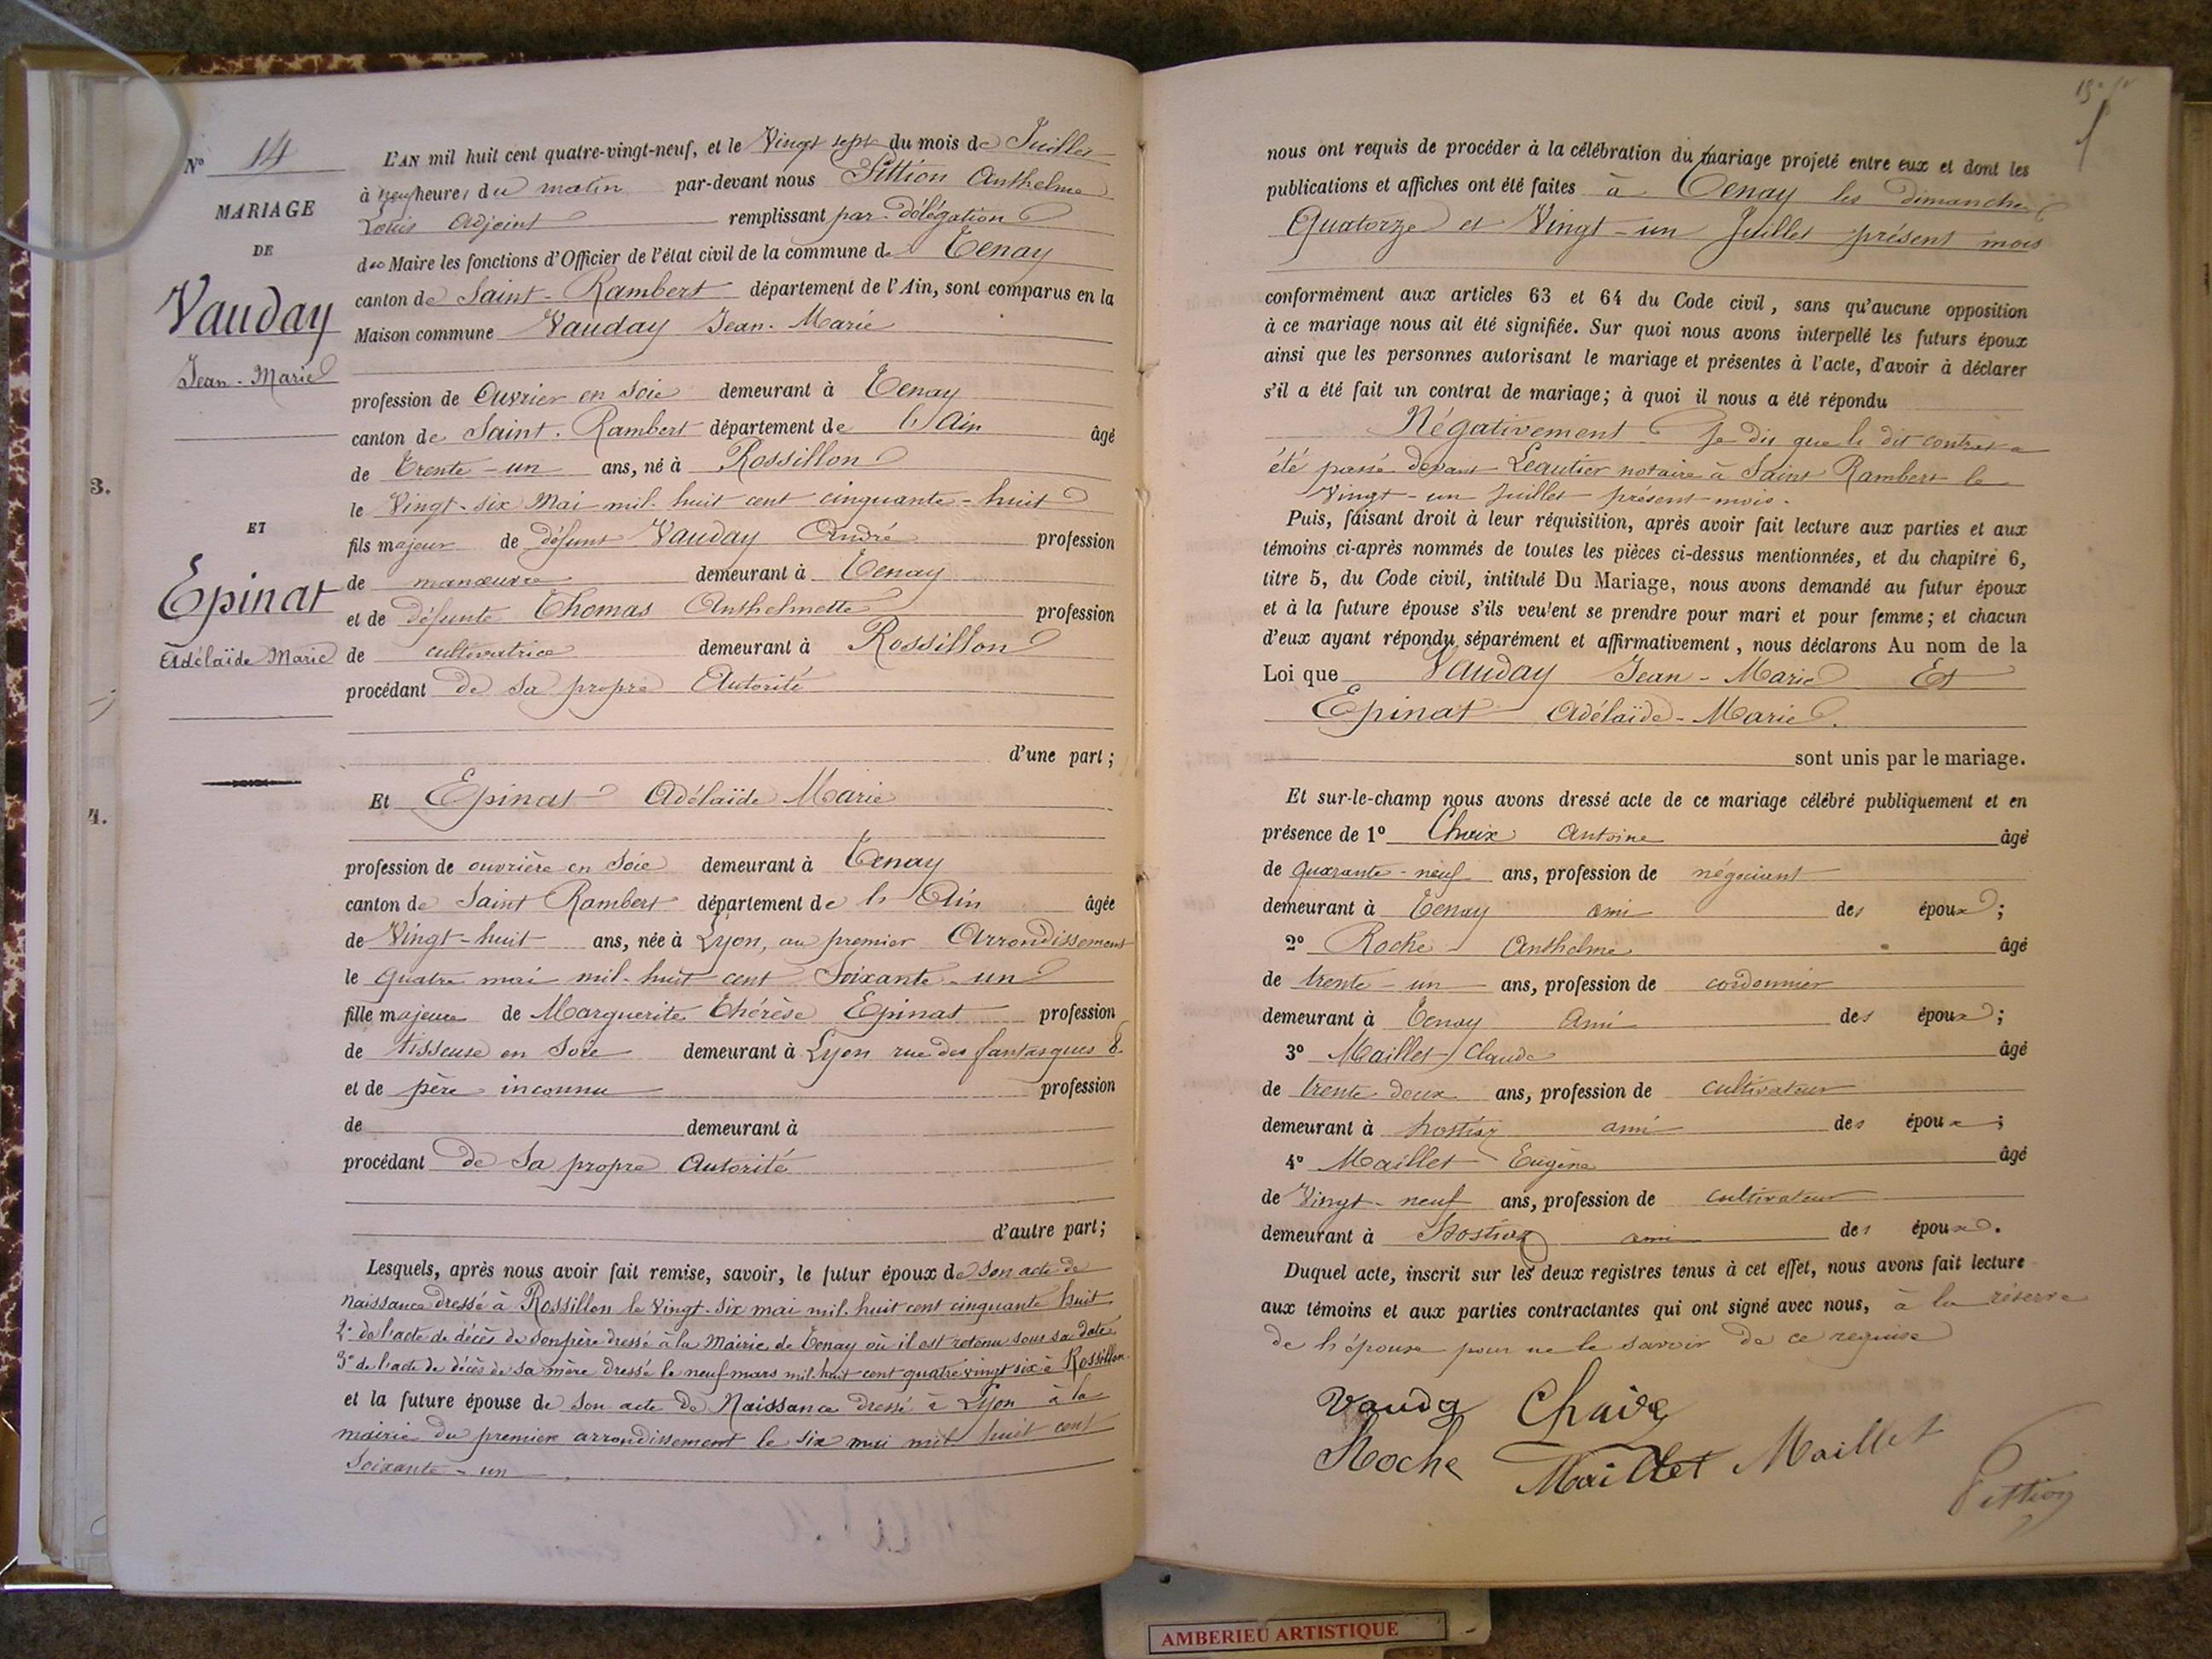 N° 14
MARIAGE
DE
Vauday
Jean-Marie
ET
Epinat
Adélaïde Marie
3.
4.
L'AN mil huit cent quatre-vingt-neuf, et le Vingt sept du mois de Juillet
à neuf heures du matin par-devant nous Pittion Anthelme
Louis Adjoint remplissant par délégation
du Maire les fonctions d'Officier de l'état civil de la commune de Tenay
canton de Saint-Rambert département de l'Ain, sont comparus en la
Maison commune Vauday Jean-Marie
profession de Ouvrier en soie demeurant à Tenay
canton de Saint-Rambert département de l'Ain âgé
de trente-un ans, né à Rossillon
le Vingt-six Mai mil-huit cent cinquante-huit
fils majeur de défunt Vauday André profession
de manœuvre demeurant à Tenay
et de défunte Thomas Anthelmette profession
de cultivatrice demeurant à Rossillon
procédant de sa propre Autorité
d'une part ;
Et Epinat Adélaïde Marie
profession de ouvrière en soie demeurant à Tenay
canton de Saint Rambert département de l'Ain âgée
de Vingt-huit ans, née à Lyon, au premier Arrondissement
le quatre mai mil-huit cent Soixante-un
fille majeure de Marguerite Thérèse Epinat profession
de tisseuse en soie demeurant à Lyon rue des fantasques 8.
et de père inconnu profession
de demeurant à
procédant de sa propre Autorité
d'autre part ;
Lesquels, après nous avoir fait remise, savoir, le futur époux de son acte de
naissance dressé à Rossillon le Vingt-six mai mil-huit cent cinquante huit
2° de l'acte de décès de son père dressé à la Mairie de Tenay où il est retenu sous sa date
3° de l'acte de décès de sa mère dressé le neuf mars mil-huit cent quatre vingt six à Rossillon
et la future épouse de son acte de Naissance dressé à Lyon à la
mairie du premier arrondissement le six mai mil huit cent
Soixante-un
nous ont requis de procéder à la célébration du mariage projeté entre eux et dont les
publications et affiches ont été faites à Tenay les dimanches
Quatorze et Vingt-un Juillet présent mois
conformément aux articles 63 et 64 du Code civil, sans qu'aucune opposition
à ce mariage nous ait été signifiée. Sur quoi nous avons interpellé les futurs époux
ainsi que les personnes autorisant le mariage et présentes à l'acte, d'avoir à déclarer
s'il a été fait un contrat de mariage ; à quoi il nous a été répondu
Négativement Je dis que le dit contrat a
été passé devant Leautier notaire à Saint Rambert le
Vingt-un Juillet présent mois.
Puis, faisant droit à leur réquisition, après avoir fait lecture aux parties et aux
témoins ci-après nommés de toutes les pièces ci-dessus mentionnées, et du chapitre 6,
titre 5, du Code civil, intitulé Du Mariage, nous avons demandé au futur époux
et à la future épouse s'ils veulent se prendre pour mari et pour femme ; et chacun
d'eux ayant répondu séparément et affirmativement, nous déclarons Au nom de la
Loi que Vauday Jean-Marie Et
Epinat Adélaïde-Marie.
sont unis par le mariage.
Et sur-le-champ nous avons dressé acte de ce mariage célébré publiquement et en
présence de 1° Choix Antoine âgé
de quarante-neuf ans, profession de négociant
demeurant à Tenay ami des époux ;
2° Roche Anthelme âgé
de trente-un ans, profession de cordonnier
demeurant à Tenay ami des époux ;
3° Maillet Claude âgé
de trente deux ans, profession de cultivateur
demeurant à hostiaz ami des époux ;
4° Maillet Eugène âgé
de Vingt-neuf ans, profession de cultivateur
demeurant à Hostiaz ami des époux.
Duquel acte, inscrit sur les deux registres tenus à cet effet, nous avons fait lecture
aux témoins et aux parties contractantes qui ont signé avec nous, à la réserve
de l'épouse pour ne le savoir de ce requise
Vauday Choix
Roche Maillet Maillet
Pittion
AMBERIEU ARTISTIQUE